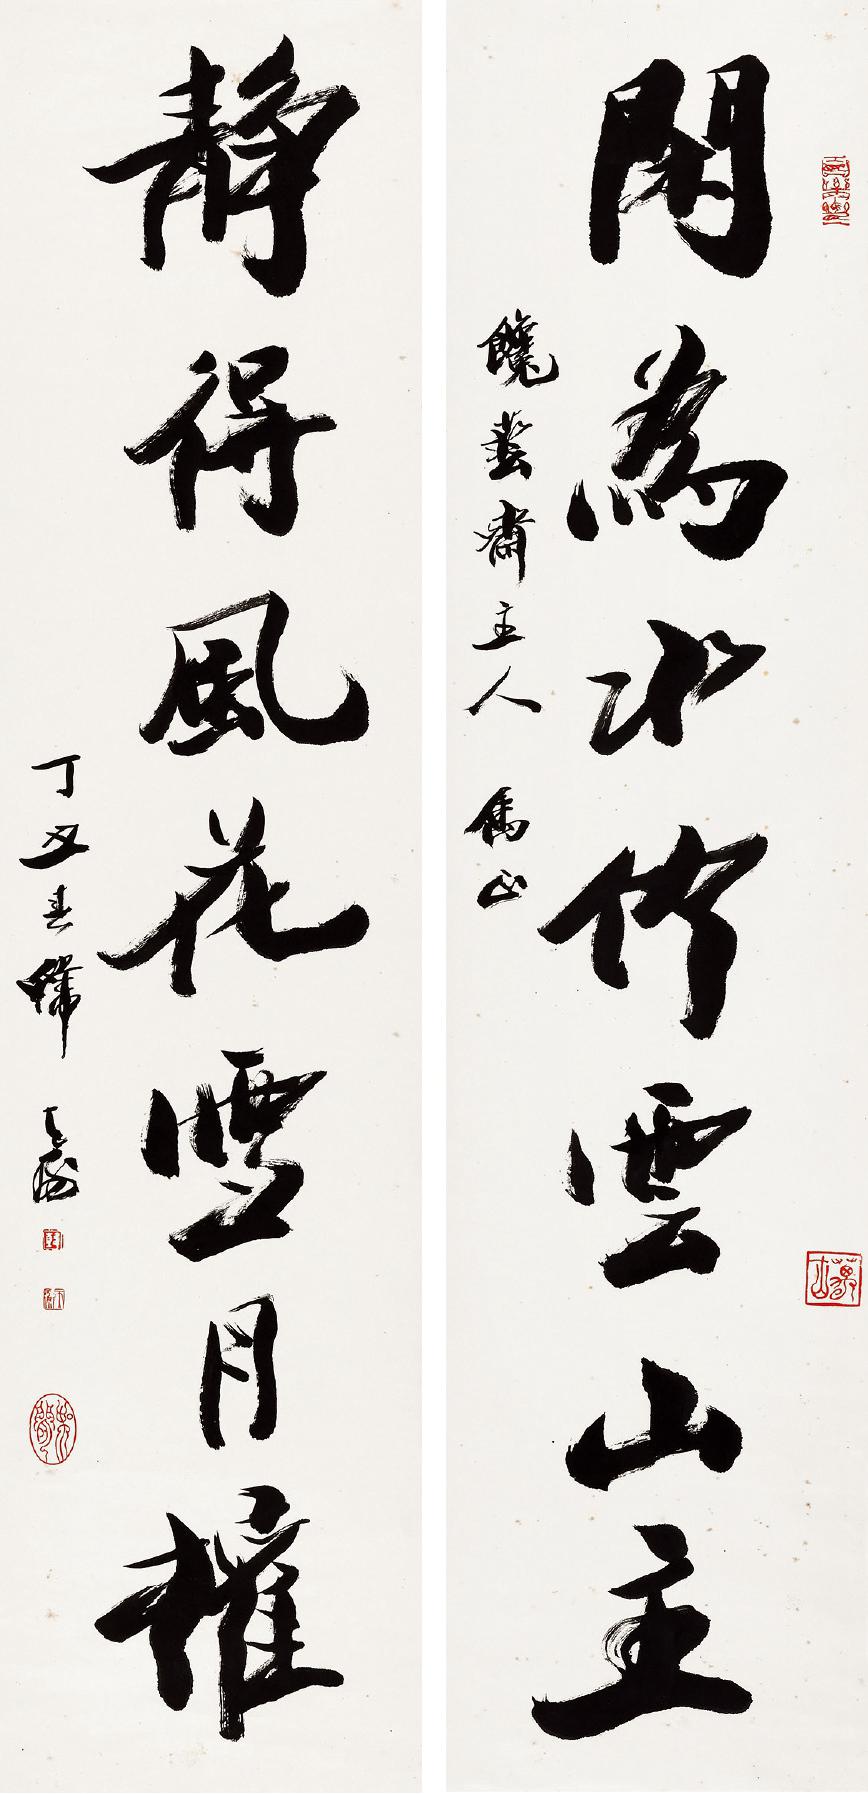 閑為水竹雲山主
饞藝齋主人 雋正
靜得風花雪月權
丁丑春緯